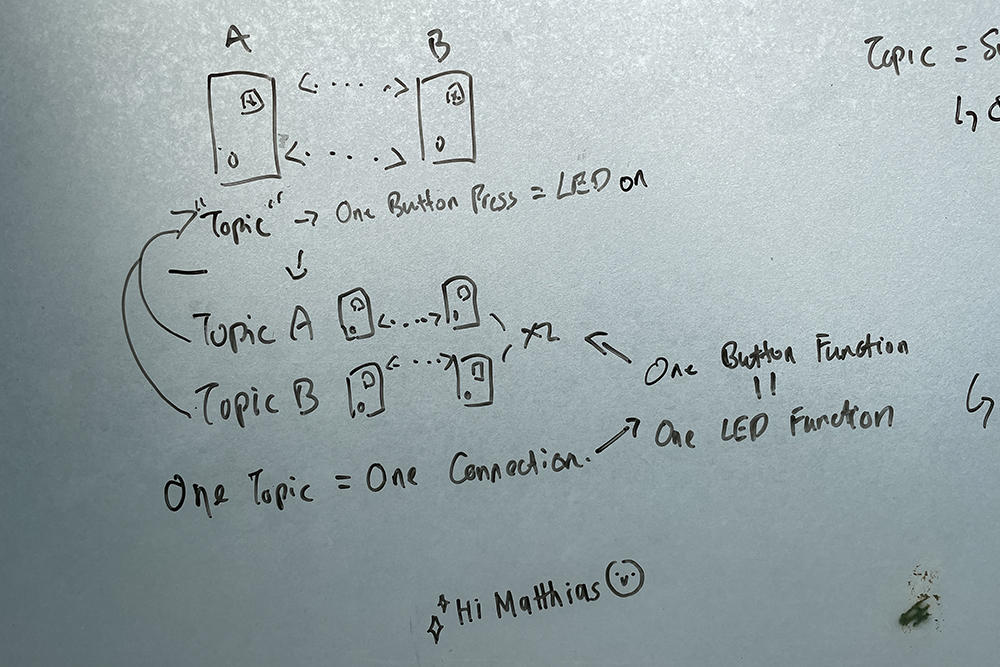 A B
Topic =
"Topic" → One Button Press = LED on
Topic A
x2
Topic B
One Button Function
One LED Function
One Topic = One Connection.
Hi Matthias